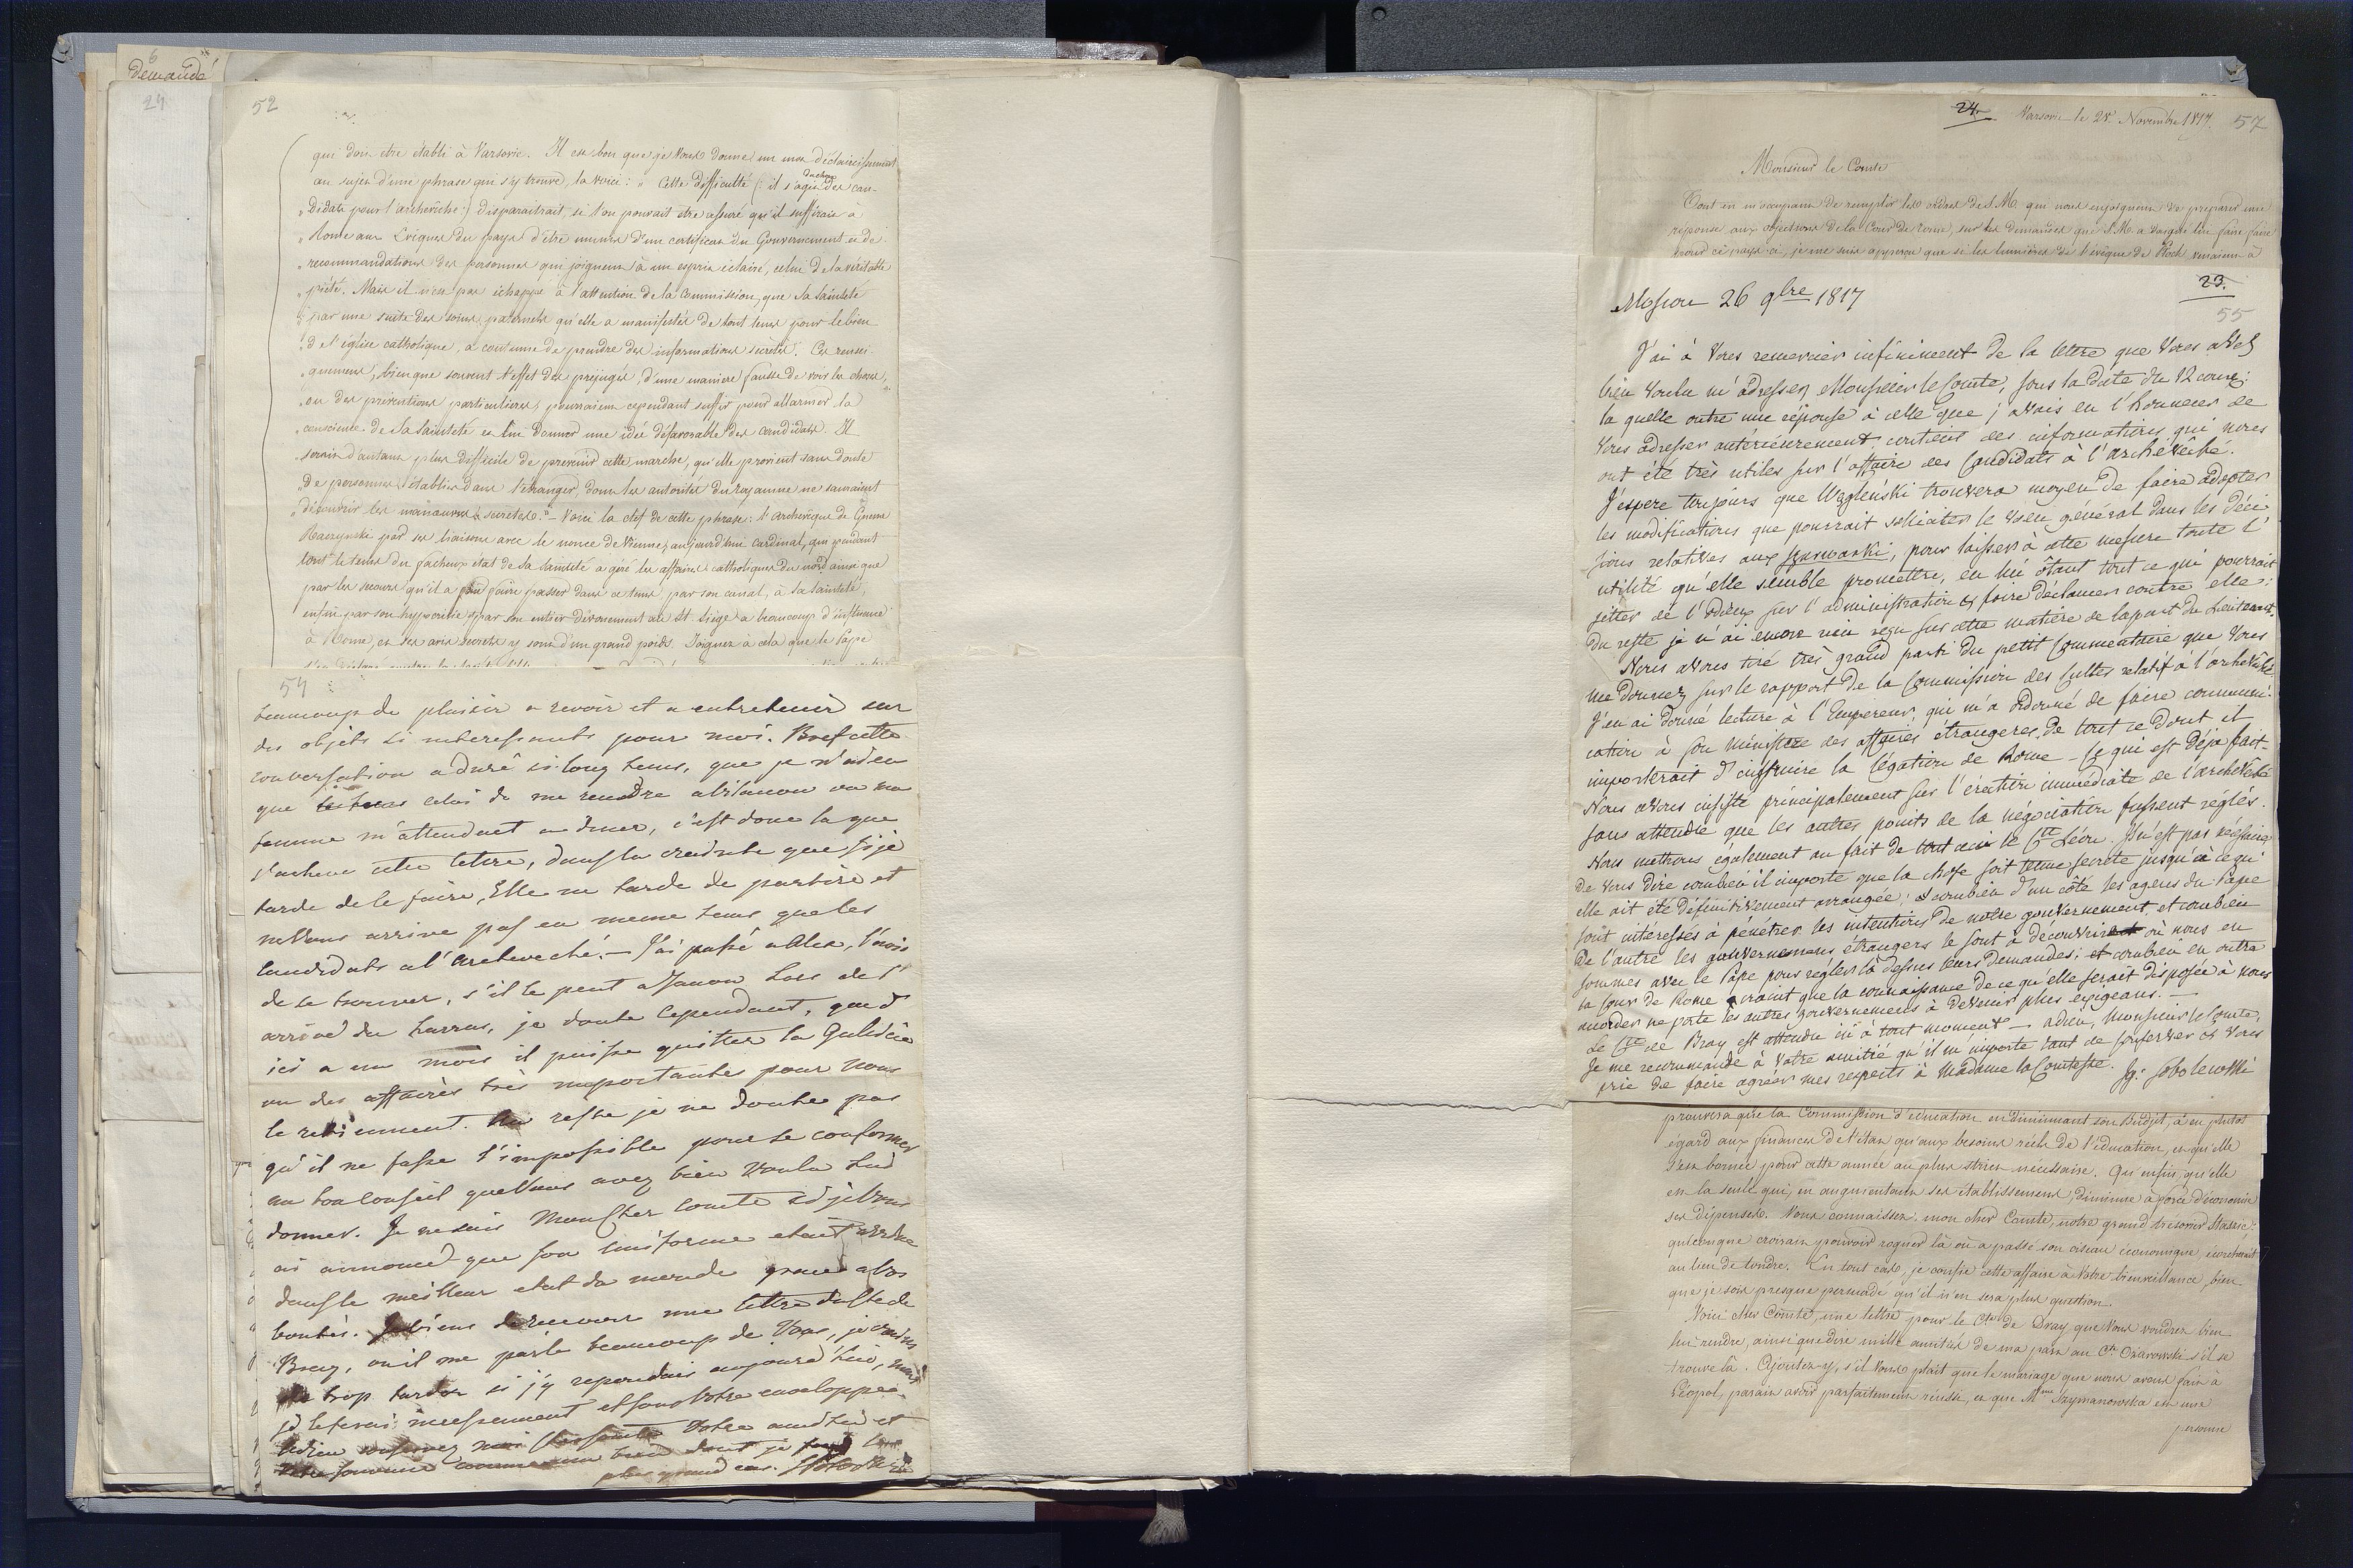 demandé
24
52
qui doit etre établi à Varsovie. Il est bon que je Vous donne un mot d'éclaircissement
au sujet d'une phrase qui s'y trouve, la voici: " Cette difficulté (: il s'agit du choix des can-
" didats pour l'archevêché:) disparaitrait, si l'on pouvait être assuré qu'il suffirait à
" Rome aux Evêques du pays d'être munis d'un certificat du Gouvernement et de
" recommandations des personnes qui joignent à un esprit éclairé, celui de la véritable
" piété. Mais il n'est pas échappé à l'attention de la Commission, que Sa Sainteté
" par une suite des soins paternels qu'elle a manifestés de tout tems pour le bien
" de l'église catholique, a coutume de prendre des informations secretes. Ces rensei-
" gnemens, bien que souvent l'effet des préjugés, d'une maniere fausse de voir les choses,
" ou des préventions particulieres, pourraient cependant suffir pour allarmer la
" conscience de Sa Sainteté et lui donner une idée défavorable des candidats. Il
" serait d'autant plus difficile de prevenir cette marche, qu'elle provient sans doute
" de personnes établies dans l'étranger, dont les autorités du royaume ne sauraient
" découvrir les manœuvres secretes." – Voici la clef de cette phrase: l'Archevêque de Gnesne
Raczynski par ses liaisons avec le nonce de Vienne, aujourd'hui cardinal, qui pendant
tout le tems du facheux état de Sa Sainteté a géré les affaires catholiques du nord ainsi que
par les secours qu'il a pu faire passer dans ce tems par son canal, à Sa Sainteté,
enfin par son hypocrisie et par son entier dévouement au St. Siège a beaucoup d'influence
à Rome, et ses avis secrets y sont d'un grand poids. Joignez à cela que le Pape
54
beaucoup de plaisir a revoir et a entretenir sur
des objets si interessants pour moi. Bref cette
conversation a duré si long tems, que je n'ai eu
que celui de me rendre a Wilanow ou ma
femme m'attendait a diner, c'est donc la que
j'acheve cette lettre, dans la crainte que si je
tarde de le faire, Elle ne tarde de partire et
ne Vous arrive pas en meme tems que les
Candidats a l'Archeveché. – J'ai passé a Alex, l'avis
de se trouver, s'il le peut a Janow lors de l'
arrivé du harras, je doute cependant, que d'
ici a un mois il puisse quitter la Galicie
ou des affaires très importantes pour nous
le retiennent. Au reste je ne doute pas
qu'il ne fasse l'impossible pour se conformer
au bon conseil que Vous avez bien voulu lui
donner. Je ne sais Mon Cher Comte si je Vous
ai annoncé que son uniforme etait arrivé
dans le meilleur etat du monde grace a Vos
bontés. Je viens de recevoir une lettre du Cte de
Bray, ou il me parle beaucoup de Vous, je crains
de trop tarder si j'y repondais aujourd'hui, mais
je le ferai incessament et sous Votre enveloppe.
Adieu conservez moi Votre amitié et
Votre souvenir comme un bien dont je fais le
plus grand cas.
24.
Varsovie le 28. Novembre 1817.
57
Monsieur le Comte
Tout en m'occupant de remplir les ordres de S. M. qui nous enjoignent de préparer une
réponse aux objections de la Cour de Rome, sur les demandes que S. M. a daigné lui faire faire
pour ce pays-ci, je me suis apperçu que si les lumières de l'évêque de Plock venaient à
23.
55
Moscou 26 9bre 1817
J'ai à Vous remercier infiniment de la lettre que Vous avez
bien voulu m'adresser, Monsieur le Comte, sous la date du 12 cour:
la quelle outre une réponse à celle que j'avais eu l'honneur de
Vous adresser antérieurement contient des informations qui nous
ont été très utiles sur l'affaire des Candidats à l'archévêché.
J'espere toujours que Węgleński trouvera moyen de faire adopter
les modifications que pourrait solliciter le vœu general dans les déci-
sions relatives aux Szarwarki, pour laisser à cette mesure toute l'
utilité qu'elle semble promettre, en lui ôtant tout ce qui pourrait
jetter de l'odieux sur l'administration & faire déclamer contre elle:
Du reste je n'ai encore rien reçu sur cette matière de la part du Lieutenant.
Nous avons tiré très grand parti du petit Commentaire que Vous
me donnez sur le rapport de la Commission des Cultes relatif à l'archévêché.
J'en ai donné lecture à l'Empereur, qui m'a ordonné de faire communi-
cation à son Ministère des affaires étrangeres, de tout ce dont il
importerait d'instruire la légation de Rome – Ce qui est déja fait.
Nous avons insisté principalement sur l'érection immédiate de l'archévêché
sans attendre que les autres points de la négociation fussent réglés.
Nous mettrons également au fait de tout ceci le Cte Léon. Il n'est pas nécessaire
de Vous dire combien il importe que la chose soit tenue secrete jusqu'à ce qu'
elle ait été définitivement arrangée; & combien d'un côté les agens du Pape
sont intéressés à pénétrer les intentions de notre gouvernement, et combien
de l'autre les gouvernemens étrangers le sont à découvrir où nous en
sommes avec le Pape pour régler là dessus leurs demandes; et combien en outre
la Cour de Rome craint que la connaissance de ce qu'elle serait disposée à nous
accorder ne porte les autres gouvernemens à devenir plus exigeans. –
Le Cte de Bray est attendu ici à tout moment – Adieu, Monsieur le Comte,
Je me recommande à Votre amitié qu'il m'importe tant de conserver & Vous
prie de faire agréer mes respects à Madame la Comtesse. Ig: Sobolewski
prouvera que la Commission d'éducation en diminuant son Budjet, a eu plutot
égard aux finances de l'état qu'aux besoins réels de l'éducation, et qu'elle
s'est bornée pour cette année au plus strict nécessaire. Qu'enfin, qu'elle
est la seule qui, en augmentant ses établissemens, diminue à force d'économie
ses dépenses. Vous connaissez, mon cher Comte, notre grand trésorier Staszic;
quiconque croirait pouvoir rogner là où a passé son ciseau économique, écorcherait
au lieu de tondre. En tout cas, je confie cette affaire à Votre bienveillance, bien
que je sois presque persuadé qu'il n'en sera plus question.
Voici cher Comte, une lettre pour le Cte de Bray, que Vous voudrez bien
lui rendre, ainsi que dire mille amitiés de ma part au Cte Ożarowski s'il se
trouve là. Ajoutez-y, s'il Vous plait que le mariage que nous avons fait à
Léopol, parait avoir parfaitement réussi, et que Mme Szymanowska est une
personne